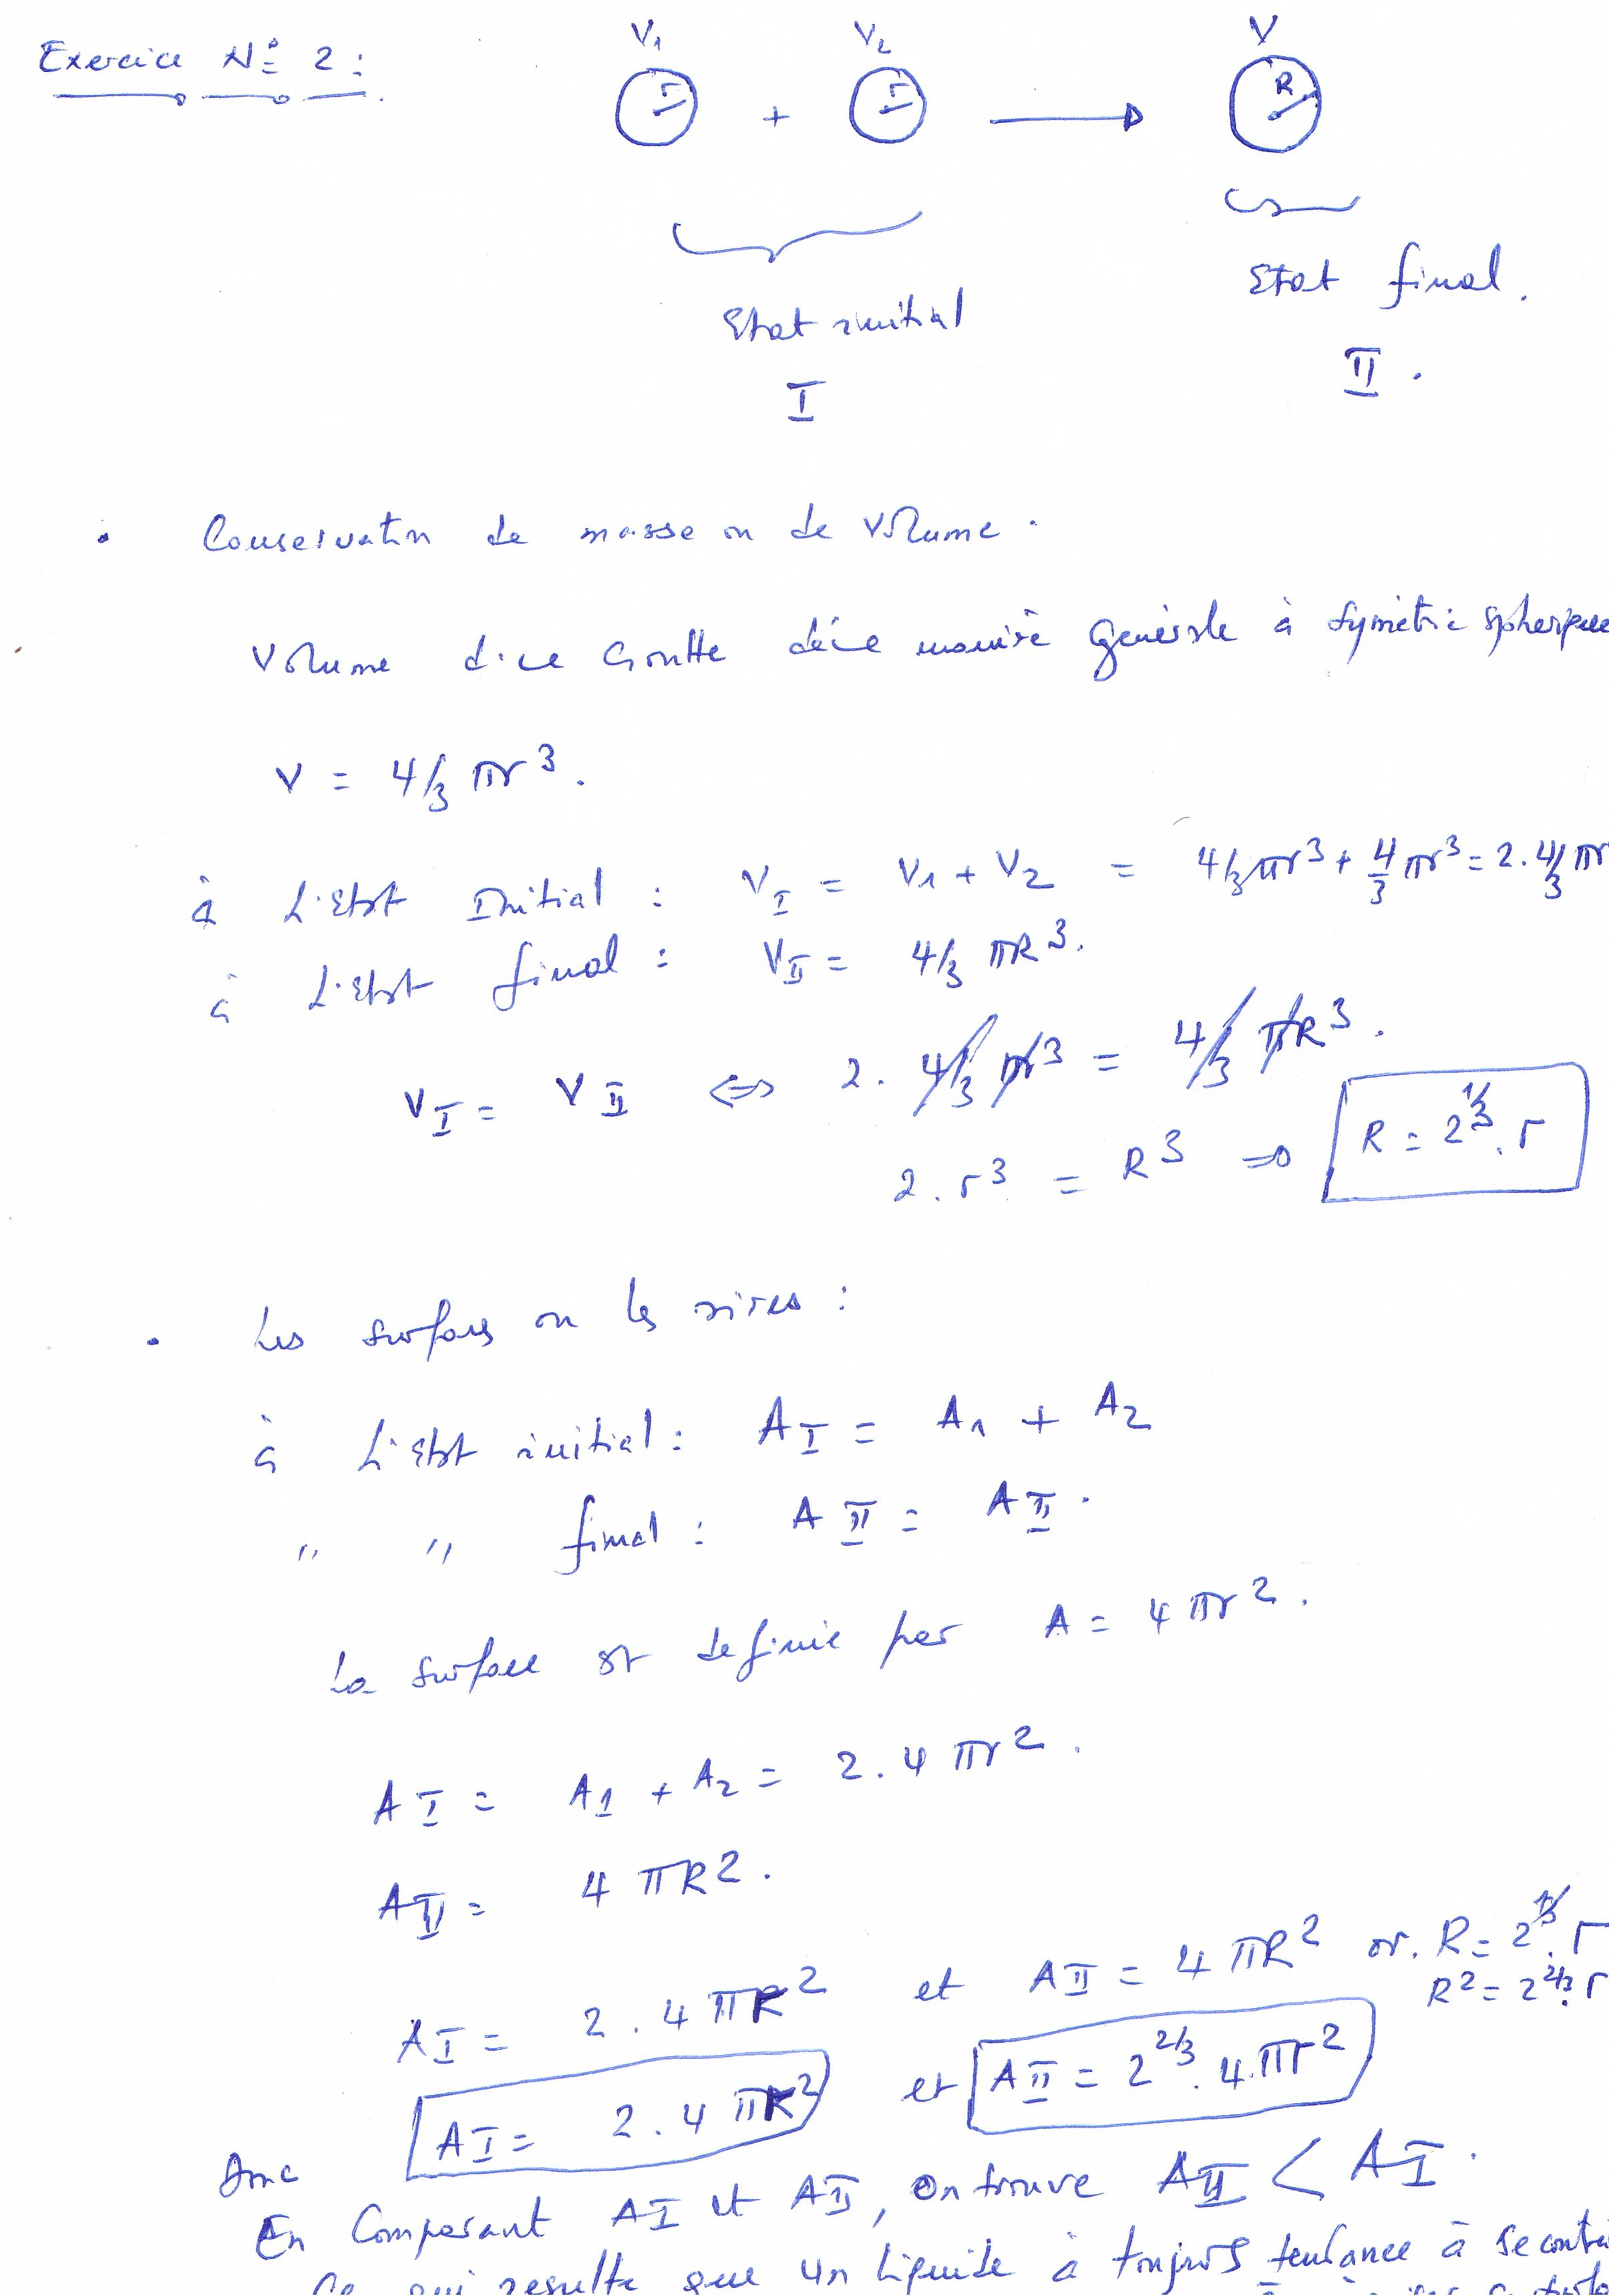 Exercice N° 2 :
V1 V2 V
r + r → R
Etat initial
I
Etat final.
II.
• Conservation de masse ou de volume.
Volume d'une Goutte d'une manière générale à symétrie spherique
V = 4/3 πr³.
à L'Etat Initial : V_I = V1 + V2 = 4/3 πr³ + 4/3 πr³ = 2. 4/3 πr
à L'Etat final : V_II = 4/3 πR³.
V_I = V_II ⇔ 2. 4/3 πr³ = 4/3 πR³.
2. r³ = R³ ⇒ R = 2^1/3 . r
• Les surfaces ou les aires :
à L'Etat initial : A_I = A1 + A2
" " final : A_II = A_II.
La surface est definie par A = 4πr².
A_I = A1 + A2 = 2. 4πr².
A_II = 4πR².
A_I = 2. 4πr² et A_II = 4πR² or. R = 2^1/3 . r
R² = 2^2/3 . r
A_I = 2. 4πr² et A_II = 2^2/3 . 4.πr²
Donc
En Comparant A_I et A_II, On trouve A_II < A_I.
Ce qui resulte que un liquide à toujours tendance à se